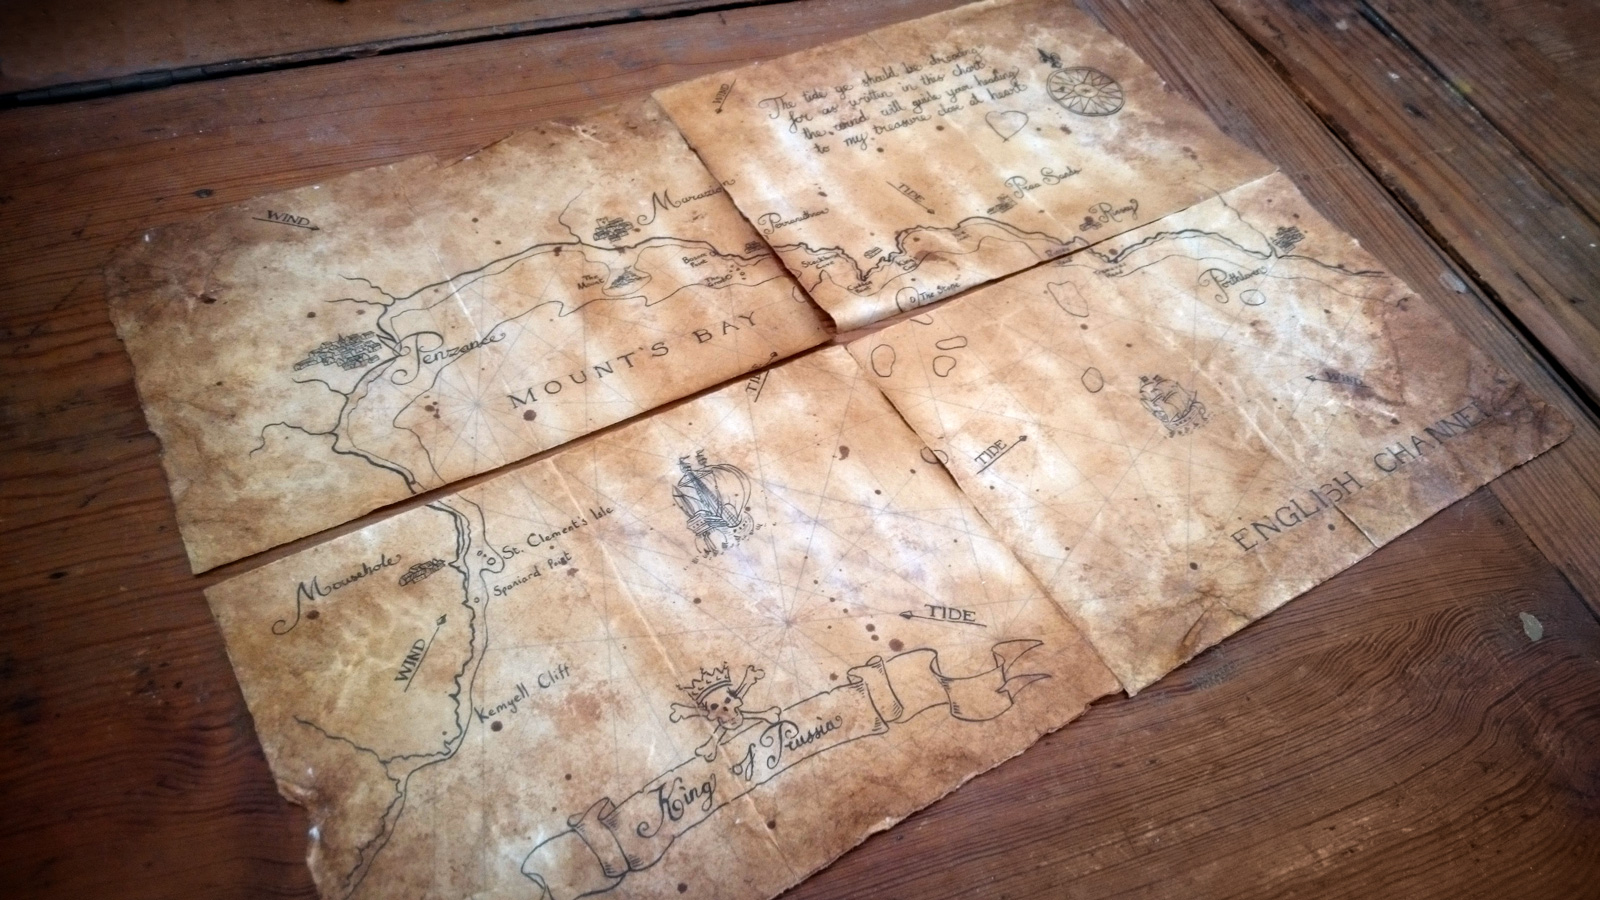 WIND
The tide ye should be drawing
for as written in this chart
the wind will guide your heading
to my treasure close at heart
WIND
Marazion
Perranuthnoe
TIDE
Praa Sands
Rinsey
The Mount
The Stone
Porthleven
Penzance
MOUNT'S BAY
TIDE
WIND
TIDE
ENGLISH CHANNEL
Mousehole
St. Clement's Isle
Spaniard Point
WIND
TIDE
Kemyell Cliff
King of Prussia